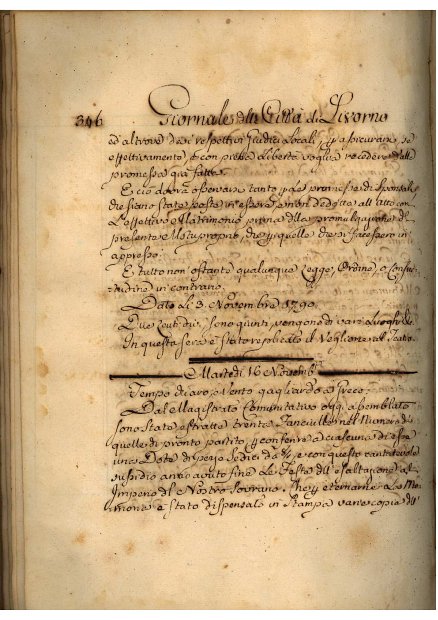 346 Giornale della Città di Livorno
ed altrove dai respettivi Giudici Locali, per assicurarsi se
effettivamente, e con piena Libertà voglia recedere dalle
promesse già fatte.
E ciò dovrà osservarsi tanto per le promesse di Sponsali
che siano state poste in essere, e non dedotte all'atto con
L'effettivo Matrimonio prima della promulgazione del
presente Motuproprio, che per quelle che si facessero in
appresso.
E tutto non ostante qualunque Legge, Ordine, o Consue-
tudine in contrario.
Dato Li 3. Novembre 1790.
Due sono giunti, vengono di vari Luoghi
In questa sera è stato replicato il Veglione al Teatro.
Martedì 16 Novembre
Tempo chiaro, e Vento gagliardo a Greco.
Dal Magistrato Comunitativo oggi assemblato
sono state estratte trenta Fanciulle nel Numero di
quelle di pronto partito per conferire a ciascuna di esse
una Dote di pezze Sedici da 8/r e con questo caritatevole
sussidio anno avuto fine Le Feste dell'esaltazione all'
Imperio del Nostro Sovrano. Che per eternarne La Me-
moria è stato dispensato in Stampa varie copie dell'